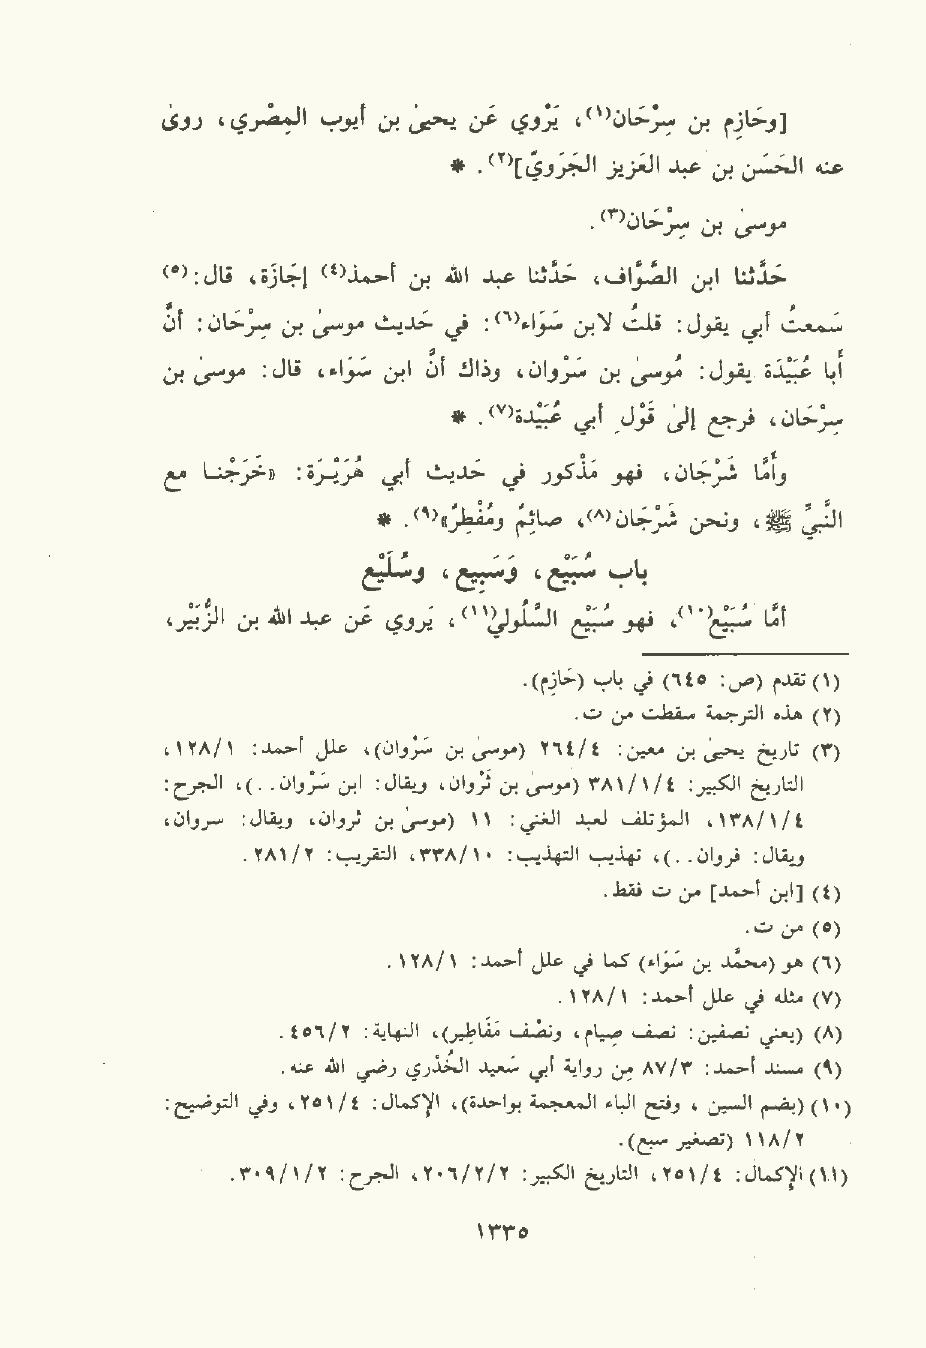 [وحَازِم بن سِرْحَان(١)، يَرْوي عَن يحيىٰ بن أيوب المِصْري، روىٰ
عنه الحَسَن بن عبد العَزيز الجَرَويّ](٢). *
موسىٰ بن سِرْحَان(٣).
حَدَّثنا ابن الصَّوَّاف، حَدَّثنا عبد الله بن أحمد(٤) إجَازَة، قال(٥):
سَمعتُ أبي يقول: قلتُ لابن سَوَاء(٦): في حَديث موسىٰ بن سِرْحَان: أنَّ
أبا عُبَيْدَة يقول: مُوسىٰ بن سَرْوان، وذاك أنَّ ابن سَوَاء، قال: موسىٰ بن
سِرْحَان، فرجع إلىٰ قَوْلِ أبي عُبَيْدة(٧). *
وأمَّا شَرْجَان، فهو مَذكور في حَديث أبي هُرَيْـرَة: «خَرَجْنـا مع
النَّبيِّ ﷺ، ونحن شَرْجَان(٨)، صائِمٌ ومُفْطِرٌ»(٩). *
باب سُبَيْع، وَسَبِيع، وسُلَيْع
أمَّا سُبَيْع(١٠)، فهو سُبَيْع السَّلُولي(١١)، يَروي عَن عبد الله بن الزُّبَيْر،
(١) تقدم (ص: ٦٤٥) في باب (حَازِم).
(٢) هذه الترجمة سقطت من ت.
(٣) تاريخ يحيىٰ بن معين: ٢٦٤/٤ (موسىٰ بن سَرْوان)، علل أحمد: ١٢٨/١،
التاريخ الكبير: ٣٨١/١/٤ (موسىٰ بن ثَرْوان، ويقال: ابن سَرْوان..)، الجرح:
١٣٨/١/٤، المؤتلف لعبد الغني: ١١ (موسىٰ بن ثروان، ويقال: سروان،
ويقال: فروان..)، تهذيب التهذيب: ٣٣٨/١٠، التقريب: ٢٨١/٢.
(٤) [ابن أحمد] من ت فقط.
(٥) من ت.
(٦) هو (محمَّد بن سَوَاء) كما في علل أحمد: ١٢٨/١.
(٧) مثله في علل أحمد: ١٢٨/١.
(٨) (يعني نصفين: نصف صِيام، ونصْف مَفَاطِير)، النهاية: ٤٥٦/٢.
(٩) مسند أحمد: ٨٧/٣ مِن رواية أبي سَعيد الخُدْري رضي الله عنه.
(١٠) (بضم السين، وفتح الباء المعجمة بواحدة)، الإكمال: ٢٥١/٤، وفي التوضيح:
١١٨/٢ (تصغير سبع).
(١١) الإكمال: ٢٥١/٤، التاريخ الكبير: ٢٠٦/٢/٢، الجرح: ٣٠٩/١/٢.
١٣٣٥